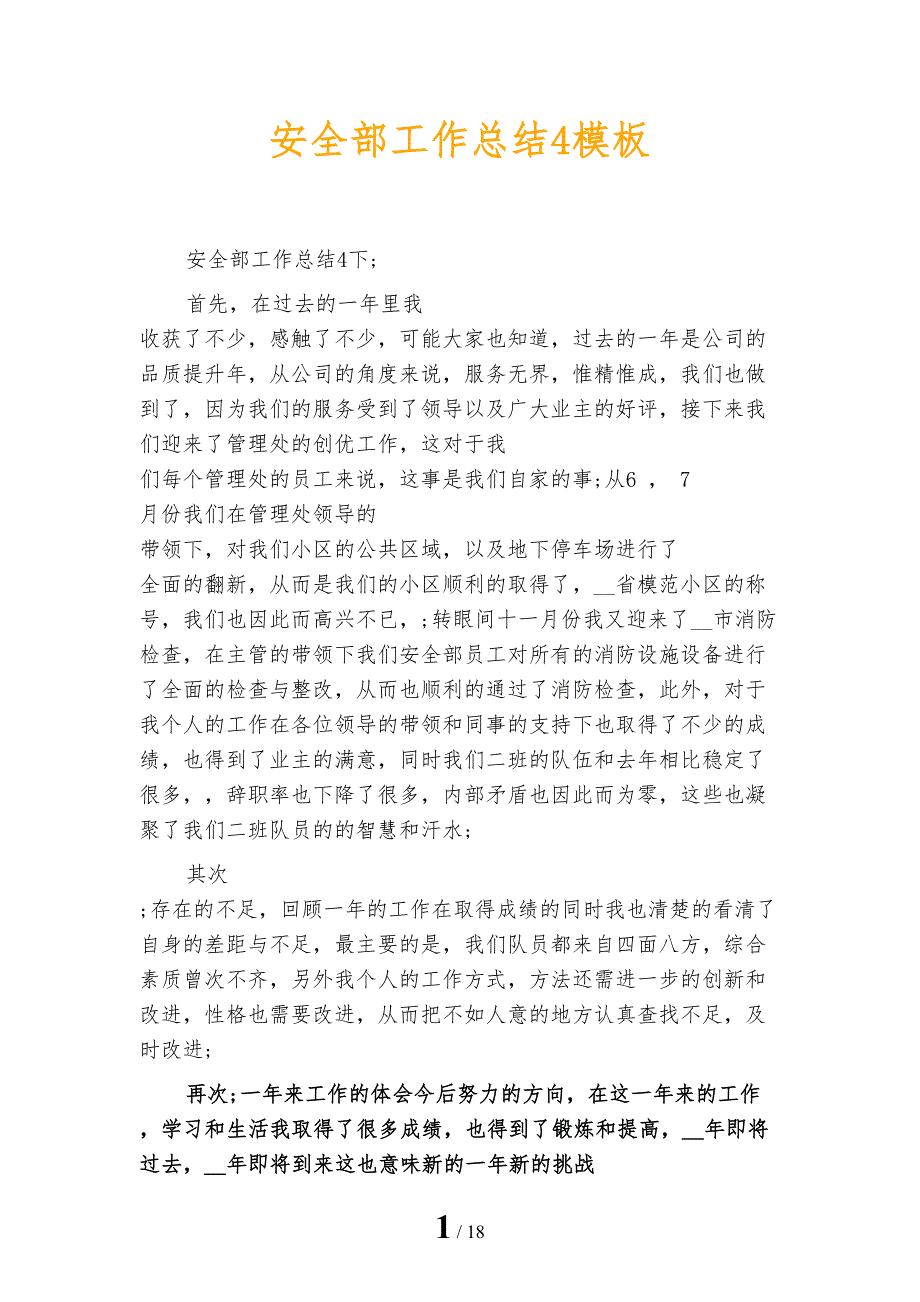 安全部工作总结4模板
安全部工作总结4下;
首先，在过去的一年里我
收获了不少，感触了不少，可能大家也知道，过去的一年是公司的
品质提升年，从公司的角度来说，服务无界，惟精惟成，我们也做
到了，因为我们的服务受到了领导以及广大业主的好评，接下来我
们迎来了管理处的创优工作，这对于我
们每个管理处的员工来说，这事是我们自家的事;从6 ， 7
月份我们在管理处领导的
带领下，对我们小区的公共区域，以及地下停车场进行了
全面的翻新，从而是我们的小区顺利的取得了，__省模范小区的称
号，我们也因此而高兴不已，;转眼间十一月份我又迎来了__市消防
检查，在主管的带领下我们安全部员工对所有的消防设施设备进行
了全面的检查与整改，从而也顺利的通过了消防检查，此外，对于
我个人的工作在各位领导的带领和同事的支持下也取得了不少的成
绩，也得到了业主的满意，同时我们二班的队伍和去年相比稳定了
很多，，辞职率也下降了很多，内部矛盾也因此而为零，这些也凝
聚了我们二班队员的的智慧和汗水;
其次
;存在的不足，回顾一年的工作在取得成绩的同时我也清楚的看清了
自身的差距与不足，最主要的是，我们队员都来自四面八方，综合
素质曾次不齐，另外我个人的工作方式，方法还需进一步的创新和
改进，性格也需要改进，从而把不如人意的地方认真查找不足，及
时改进;
再次;一年来工作的体会今后努力的方向，在这一年来的工作
，学习和生活我取得了很多成绩，也得到了锻炼和提高，__年即将
过去，__年即将到来这也意味新的一年新的挑战
1 / 18